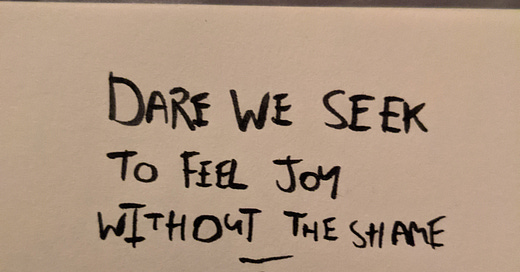 DARE WE SEEK
TO FEEL JOY
WITHOUT THE SHAME